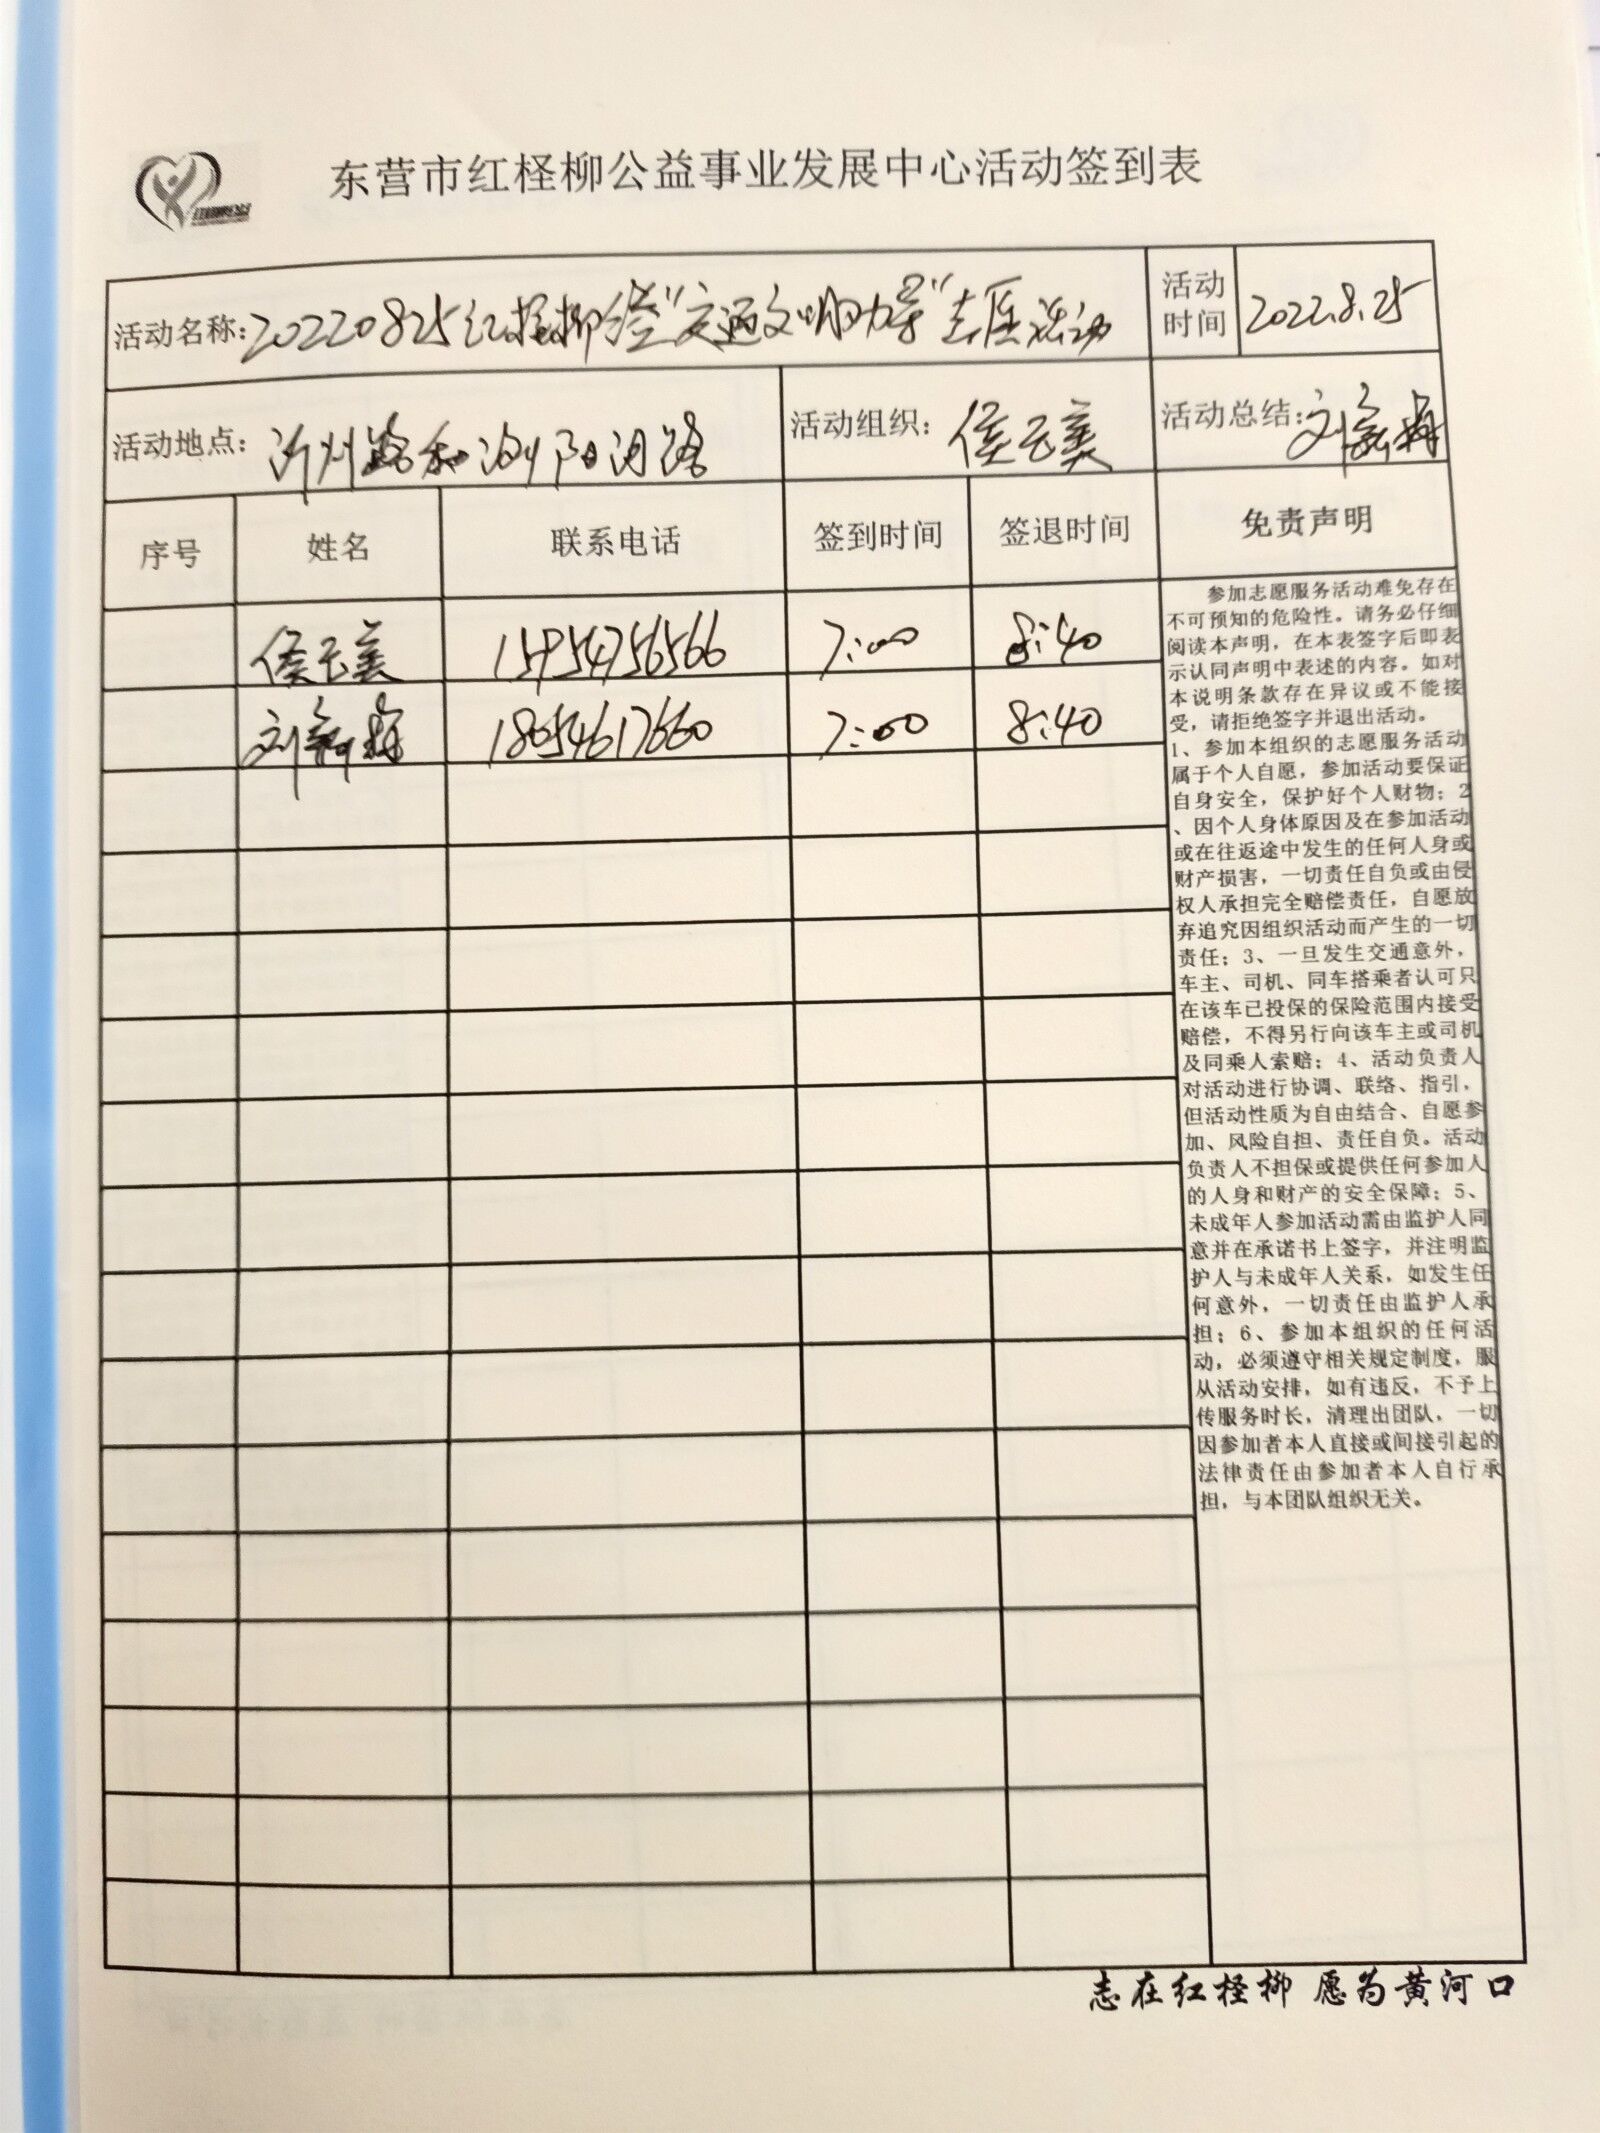 东营市红柽柳公益事业发展中心活动签到表
活动名称:20220825红柽柳"交通文明劝导"志愿活动
活动时间 2022.8.25
活动地点: 沂州路和浏阳河路
活动组织: 侯云美
活动总结: 刘
序号 姓名 联系电话 签到时间 签退时间 免责声明
侯云美 15954756566 7:00 8:40
刘 18654617660 7:00 8:40
参加志愿服务活动难免存在
不可预知的危险性。请务必仔细
阅读本声明，在本表签字后即表
示认同声明中表述的内容。如对
本说明条款存在异议或不能接
受，请拒绝签字并退出活动。
1、参加本组织的志愿服务活动
属于个人自愿，参加活动要保证
自身安全，保护好个人财物；2
、因个人身体原因及在参加活动
或在往返途中发生的任何人身或
财产损害，一切责任自负或由侵
权人承担完全赔偿责任，自愿放
弃追究因组织活动而产生的一切
责任；3、一旦发生交通意外，
车主、司机、同车搭乘者认可只
在该车已投保的保险范围内接受
赔偿，不得另行向该车主或司机
及同乘人索赔；4、活动负责人
对活动进行协调、联络、指引，
但活动性质为自由结合、自愿参
加、风险自担、责任自负。活动
负责人不担保或提供任何参加人
的人身和财产的安全保障；5、
未成年人参加活动需由监护人同
意并在承诺书上签字，并注明监
护人与未成年人关系，如发生任
何意外，一切责任由监护人承
担；6、参加本组织的任何活
动，必须遵守相关规定制度，服
从活动安排，如有违反，不予上
传服务时长，清理出团队，一切
因参加者本人直接或间接引起的
法律责任由参加者本人自行承
担，与本团队组织无关。
志在红柽柳 愿为黄河口